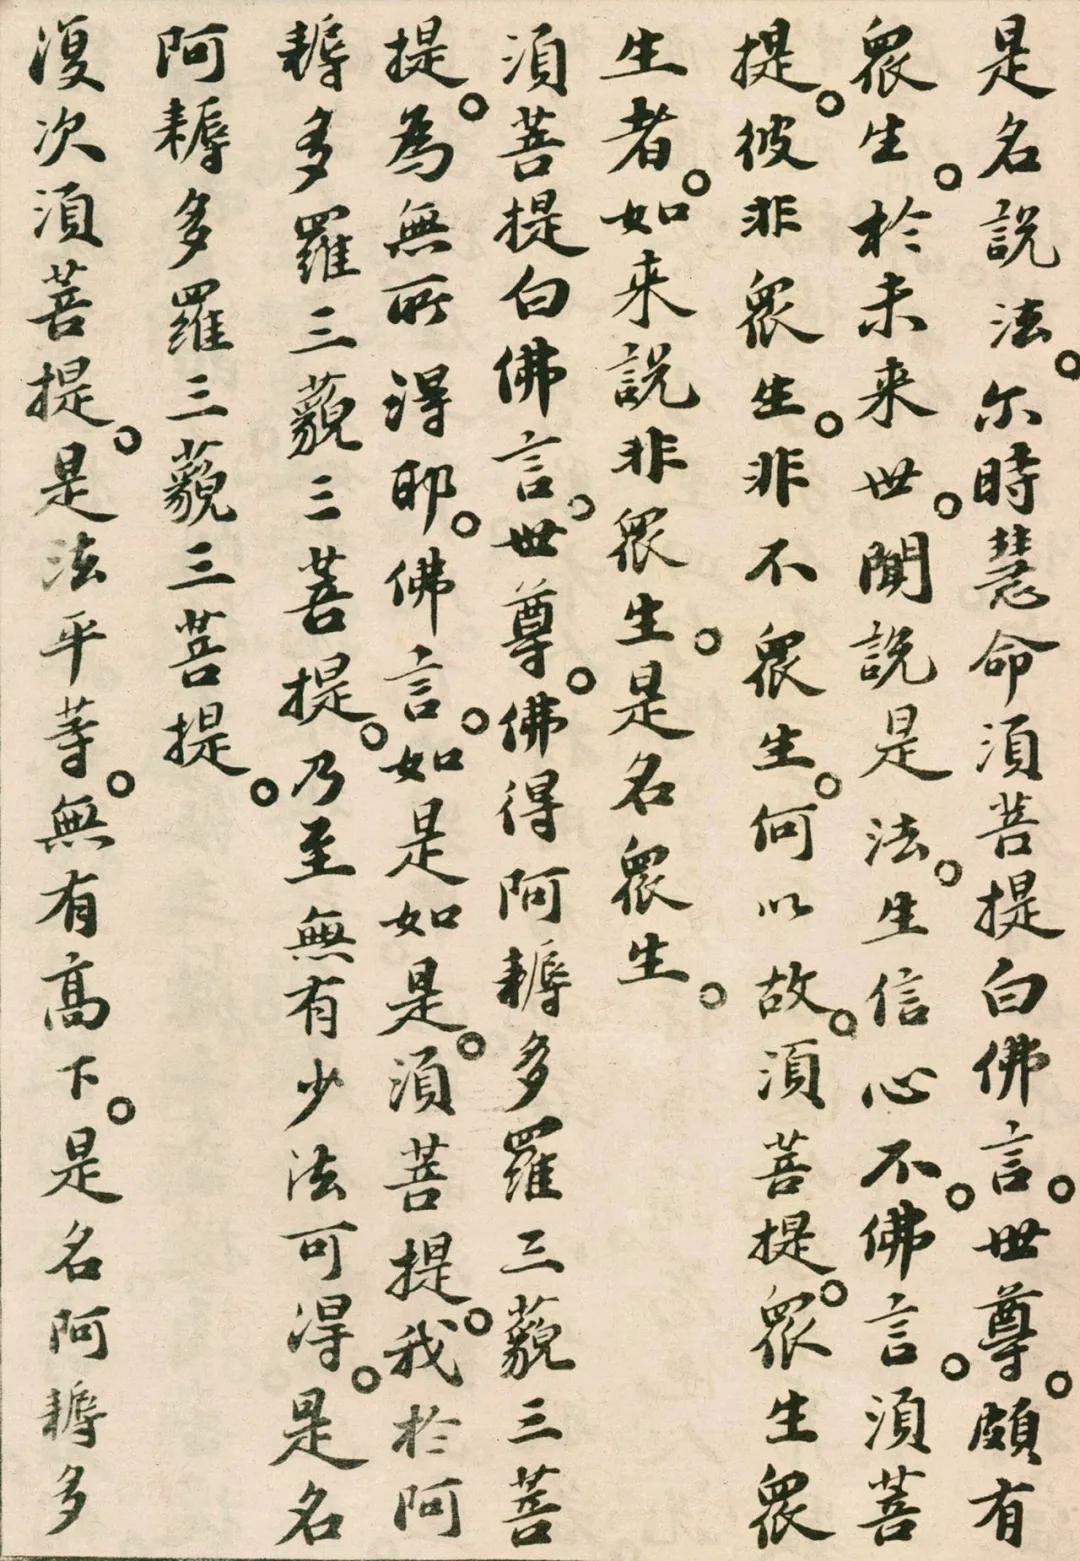 是名說法。尒時慧命須菩提白佛言。世尊。頗有
衆生。於未来世。聞說是法。生信心不。佛言。須菩
提。彼非衆生。非不衆生。何以故。須菩提。衆生衆
生者。如来說非衆生。是名衆生。
須菩提白佛言。世尊。佛得阿耨多羅三藐三菩
提。為無所得耶。佛言。如是如是。須菩提。我於阿
耨多羅三藐三菩提。乃至無有少法可得。是名
阿耨多羅三藐三菩提。
復次須菩提。是法平等。無有高下。是名阿耨多